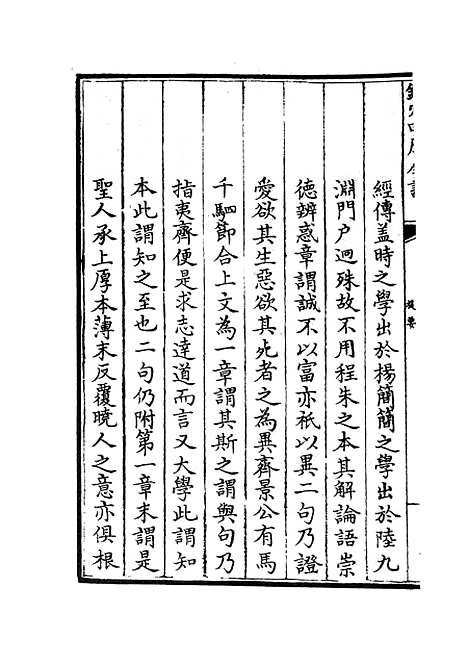 經傳盖時之學出於楊簡簡之學出於陸九
淵門户迥殊故不用程朱之本其解論語崇
徳辨惑章謂誠不以富亦祇以異二句乃證
愛欲其生惡欲其死者之為異齊景公有馬
千駟節合上文為一章謂其斯之謂與句乃
指夷齊便是求志逹道而言又大學此謂知
本此謂知之至也二句仍附第一章末謂是
聖人承上厚本薄末反覆曉人之意亦俱根
提要